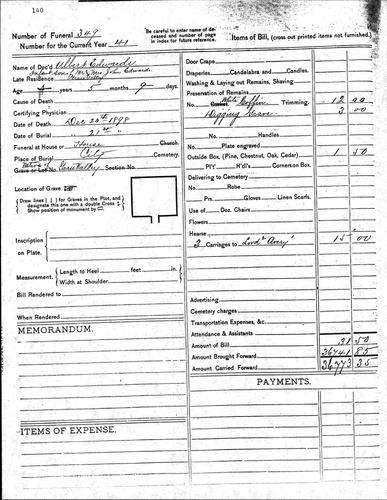 140
Number of Funeral 349
Number for the Current Year 41
Be carefully to enter name of deceased and number of page in index for future reference.
Items of Bill, (cross out printed items not furnished.)
Name of Dec'd Albert Edwards
Infant son of Mr & Mrs John Edwards
Late Residence
Age 4 years 5 months 9 days.
Cause of Death
Certifying Physician
Date of Death Dec 20th 1898
Date of Burial " 21st "
Funeral at House or House Church.
Place of Burial City Cemetery.
Grave or Lot No. Section No.
Location of Grave
Draw lines for Graves in the Plot, and
designate this one with a double Cross
Show position of monument by
Inscription
on Plate.
Measurement. Length to Heel feet in.
Width at Shoulder
Bill Rendered to
When Rendered
MEMORANDUM.
ITEMS OF EXPENSE.
Door Crape
Draperies Candelabra and Candles.
Washing & Laying out Remains, Shaving
Preservation of Remains
No. White Coffin Trimming. 12 00
Digging Grave 3 00
No. Handles
Plate engraved
Outside Box (Pine, Chestnut, Oak, Cedar) 1 50
P'l'y H'd'l's Cornerson Box.
Delivering to Cemetery
No. Robe
Prs. Gloves Linen Scarfs.
Use of Doz. Chairs
Flowers
Hearse
3 Carriages to Lord Avery 15 00
Advertising
Cemetery charges
Transportation Expenses, &c.
Attendance & Assistants
Amount of Bill 31 50
Amount Brought Forward 36741 85
Amount Carried Forward 36773 35
PAYMENTS.